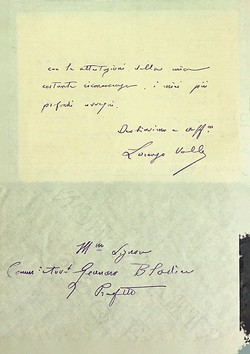 con le attestazioni della mia
costante riconoscenza, i miei più
profondi ossequi.
Devotissimo e aff.mo
Lorenzo Valle
Ill.mo Signor
Gennaro
Prefetto